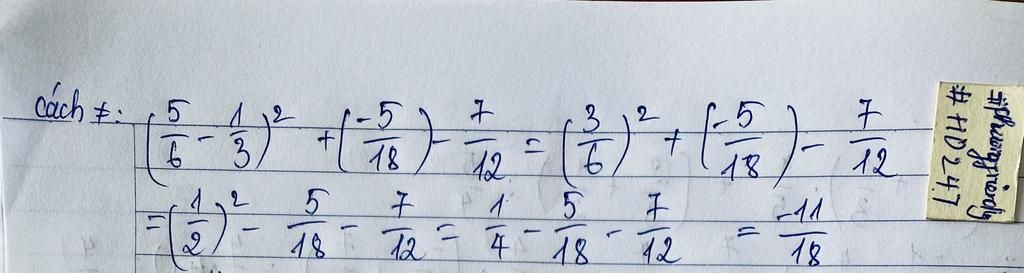 cách ≠: (5/6 - 1/3)² + (-5/18) - 7/12 = (3/6)² + (-5/18) - 7/12
= (1/2)² - 5/18 - 7/12 = 1/4 - 5/18 - 7/12 = -11/18
# HD 247